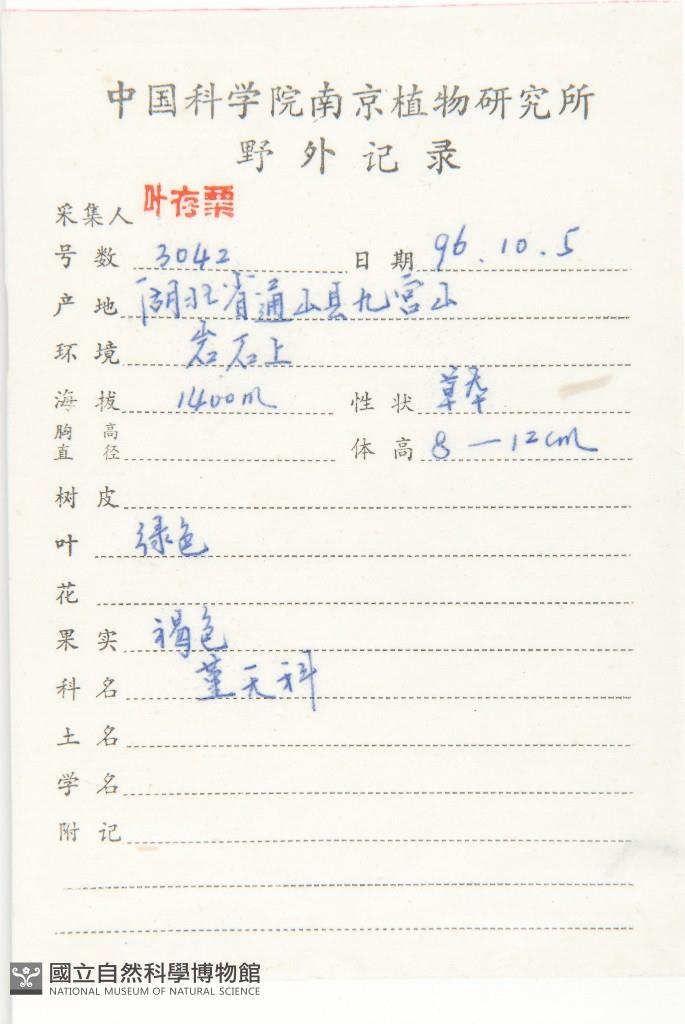 中国科学院南京植物研究所
野外记录
采集人 叶存栗
号数 3042 日期 96.10.5
产地 湖北省通山县九宫山
环境 岩石上
海拔 1400m 性状 草本
胸高直径 体高 8—12cm
树皮
叶 绿色
花
果实 褐色
科名 堇天科
土名
学名
附记
國立自然科學博物館
NATIONAL MUSEUM OF NATURAL SCIENCE